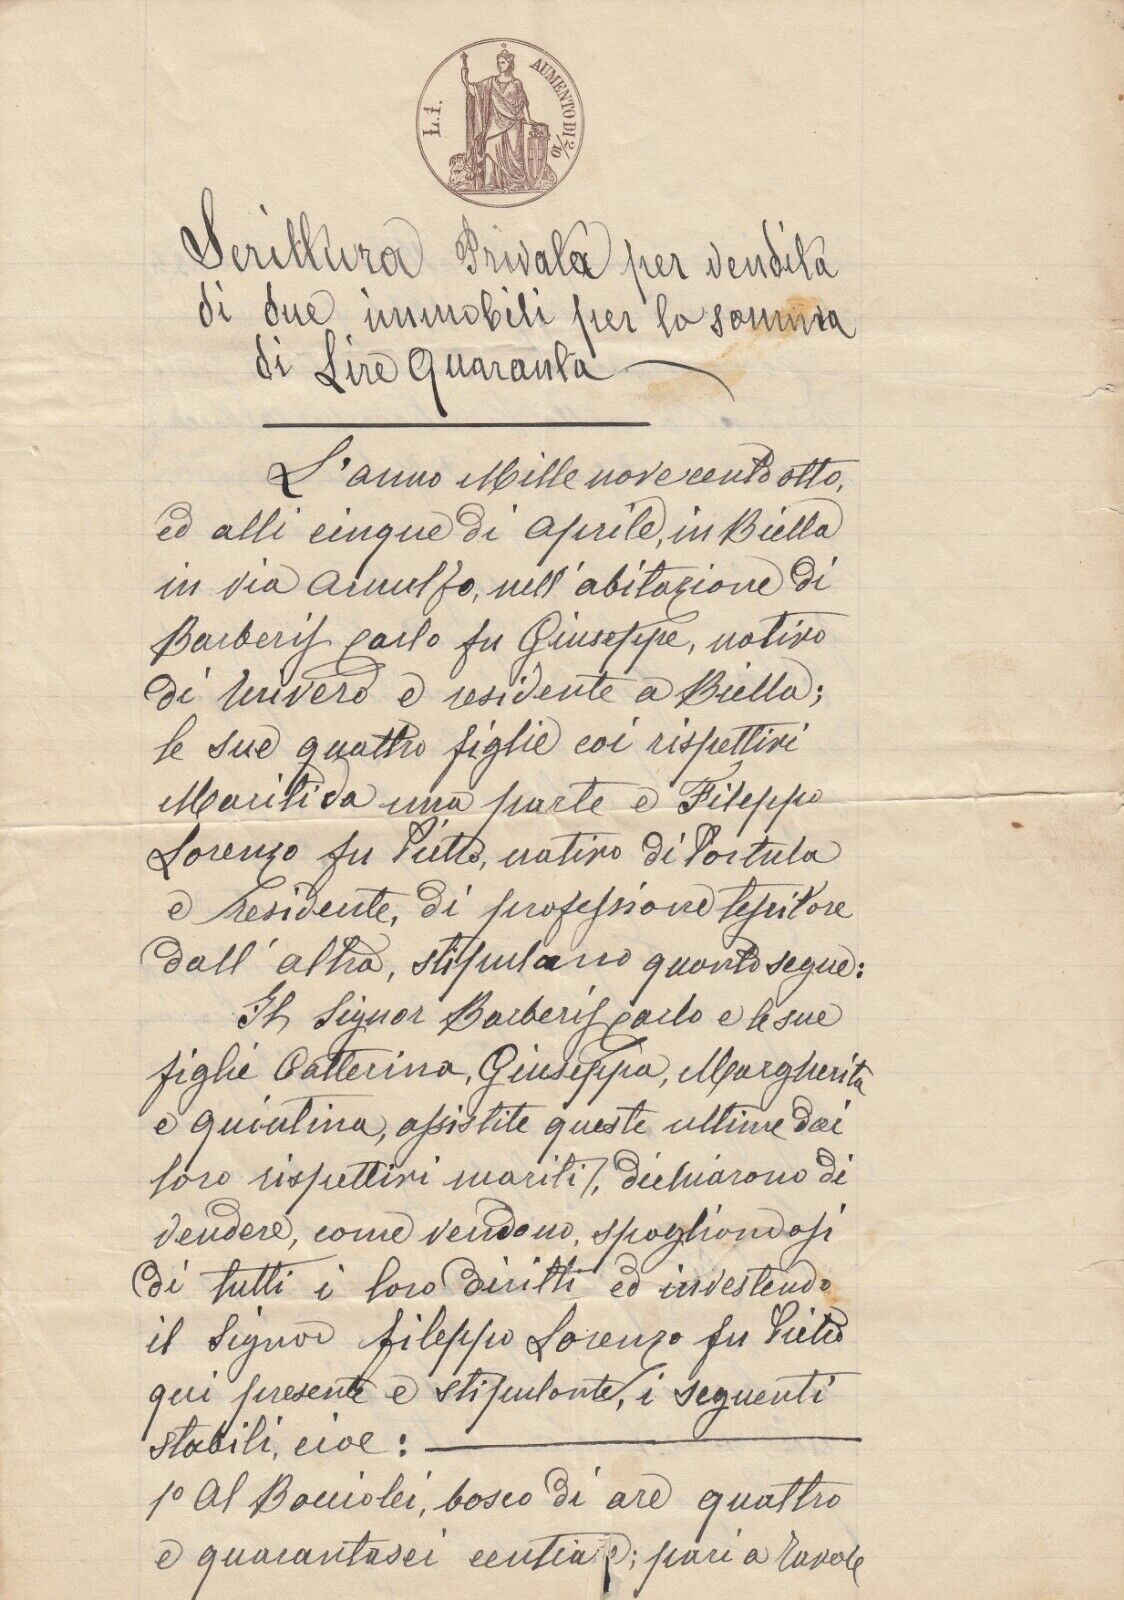 L. 1. AUMENTO DI 2/10
Scrittura Privata per vendita
di due immobili per la somma
di Lire Quaranta
L'anno Mille novecento otto,
ed alli cinque di Aprile, in Biella
in via Arnulfo, nell'abitazione di
Barberis Carlo fu Giuseppe, nativo
di e residente a Biella;
le sue quattro figlie coi rispettivi
Mariti da una parte e Fileppo
Lorenzo fu Pietro, nativo di Portula
e residente, di professione tessitore
dall'altra, stipulano quanto segue:
Il Signor Barberis Carlo e le sue
figlie Catterina, Giuseppa, Margherita
e Quintina, assistite queste ultime dai
loro rispettivi mariti, dichiarono di
vendere, come vendono, spogliandosi
di tutti i loro diritti ed investendo
il Signor Fileppo Lorenzo fu Pietro
qui presente e stipulante, i seguenti
stabili, cioe:
1º Al bosco di are quattro
e quarantasei centiare; pari a Tavole